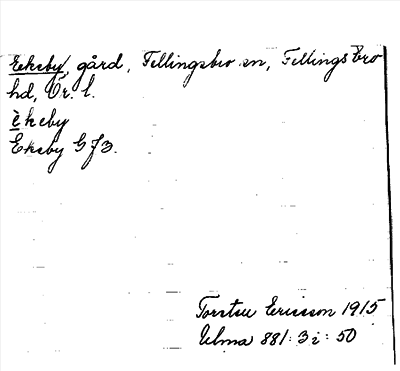 Ekeby, gård, Fellingsbro sn, Fellingsbro
hd, Ör. l.
èkeby
Ekeby G J 3.
Torsten Ericsson 1915
Ulma 881:3 i: 50